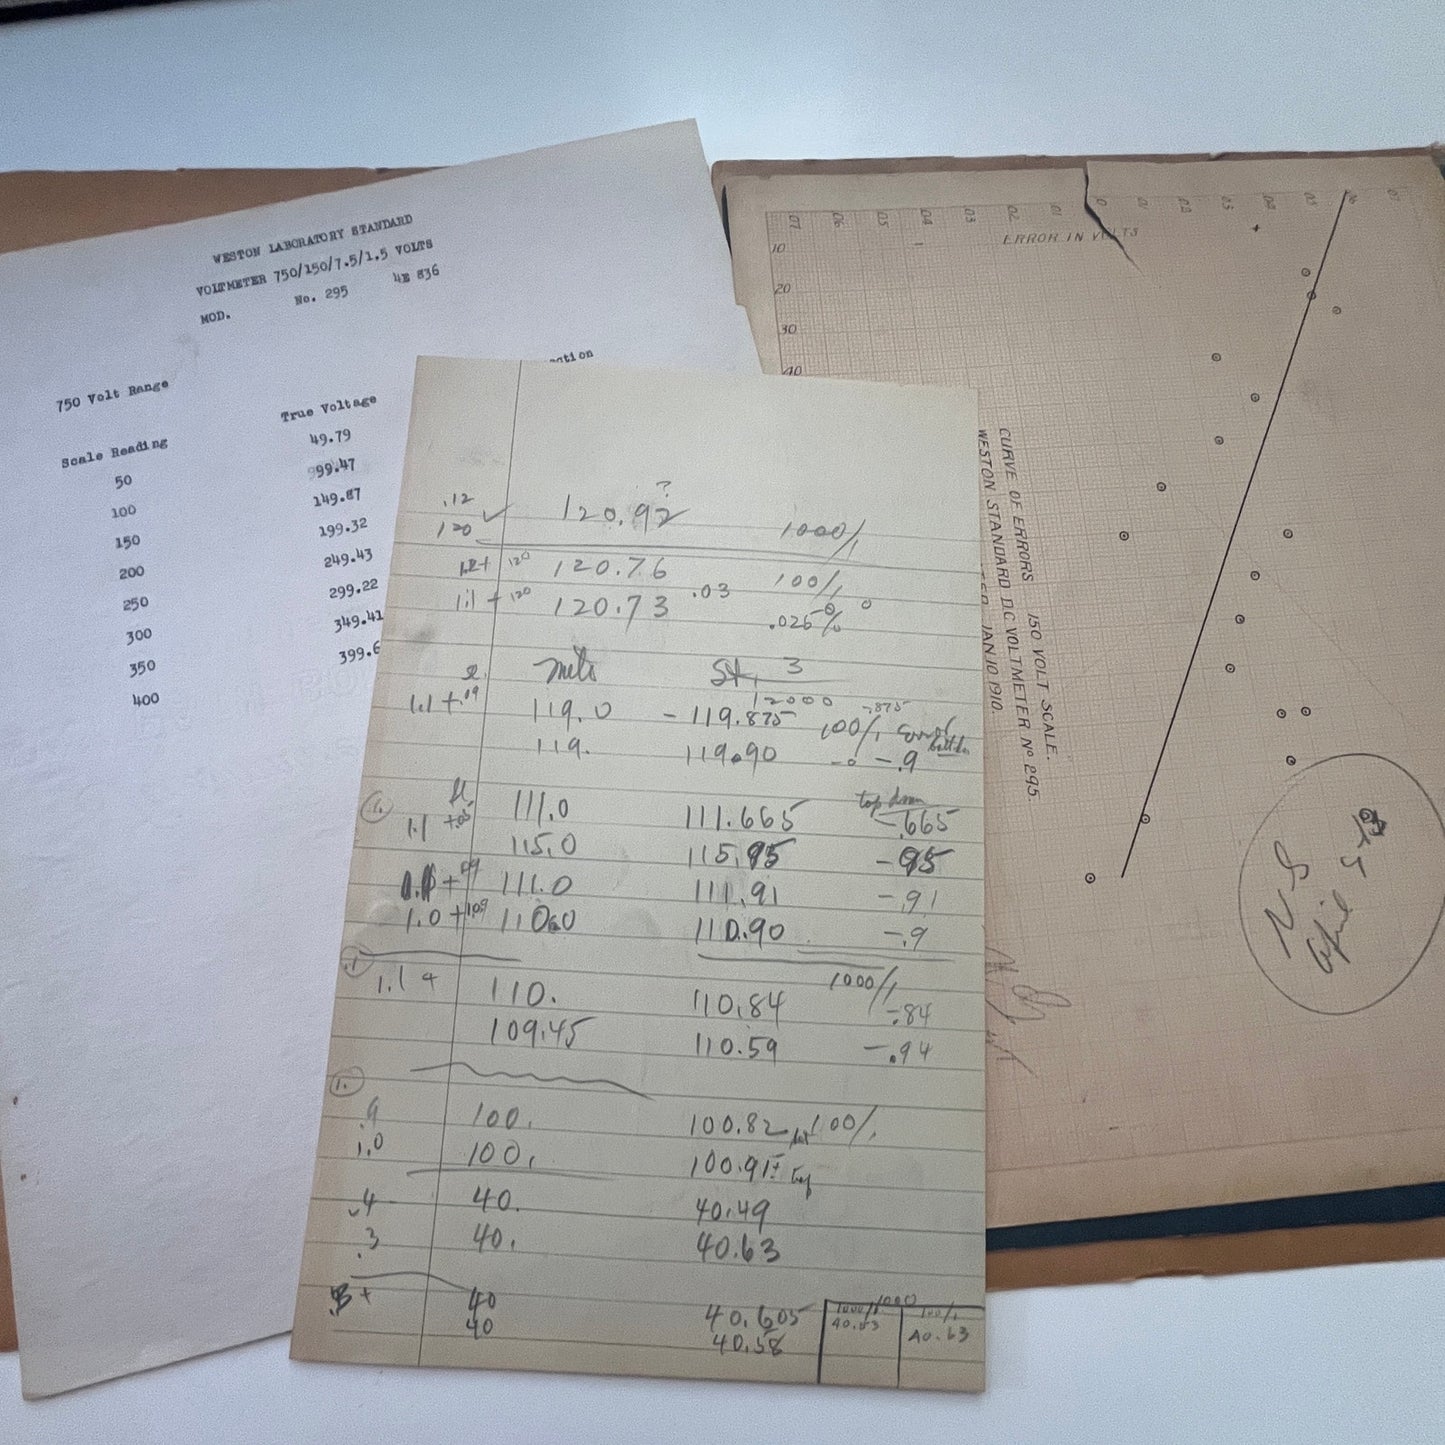 WESTON LABORATORY STANDARD
VOLTMETER 750/150/7.5/1.5 VOLTS
MOD. No. 295 4E 836
750 Volt Range
Scale Reading True Voltage
50 49.79
100 99.47
150 149.87
200 199.32
250 249.43
300 299.22
350 349.41
400 399.6
.12
120 120.92 ? 1000/1
120 120.76 100/1
1.1 + 120 120.73 .03 .025%
St, 3
12000
1.1 + .09 119.0 - 119.875 -.875
100/1
119. 119.90 -.9
111.0 111.665 top down -.665
1.1 +.05 115.0 115.95 -.95
+.09 111.0 111.91 -.91
1.0 + 110.0 110.90 -.9
.1
1.1 + 110. 110.84 1000/1 -.84
109.45 110.59 -.94
1.
.9 100. 100.82 100/1
1.0 100. 100.91
.4 40. 40.49
.3 40. 40.63
40 40.605
40 40.58
1000
1000/1 100/1
40.63
07 06 05 04 03 02 01 0 01 02 03 04 05 06 07
ERROR IN VOLTS
10
20
30
40
CURVE OF ERRORS 150 VOLT SCALE.
WESTON STANDARD D.C. VOLTMETER Nº 295.
JAN. 10 1910.
N G
April